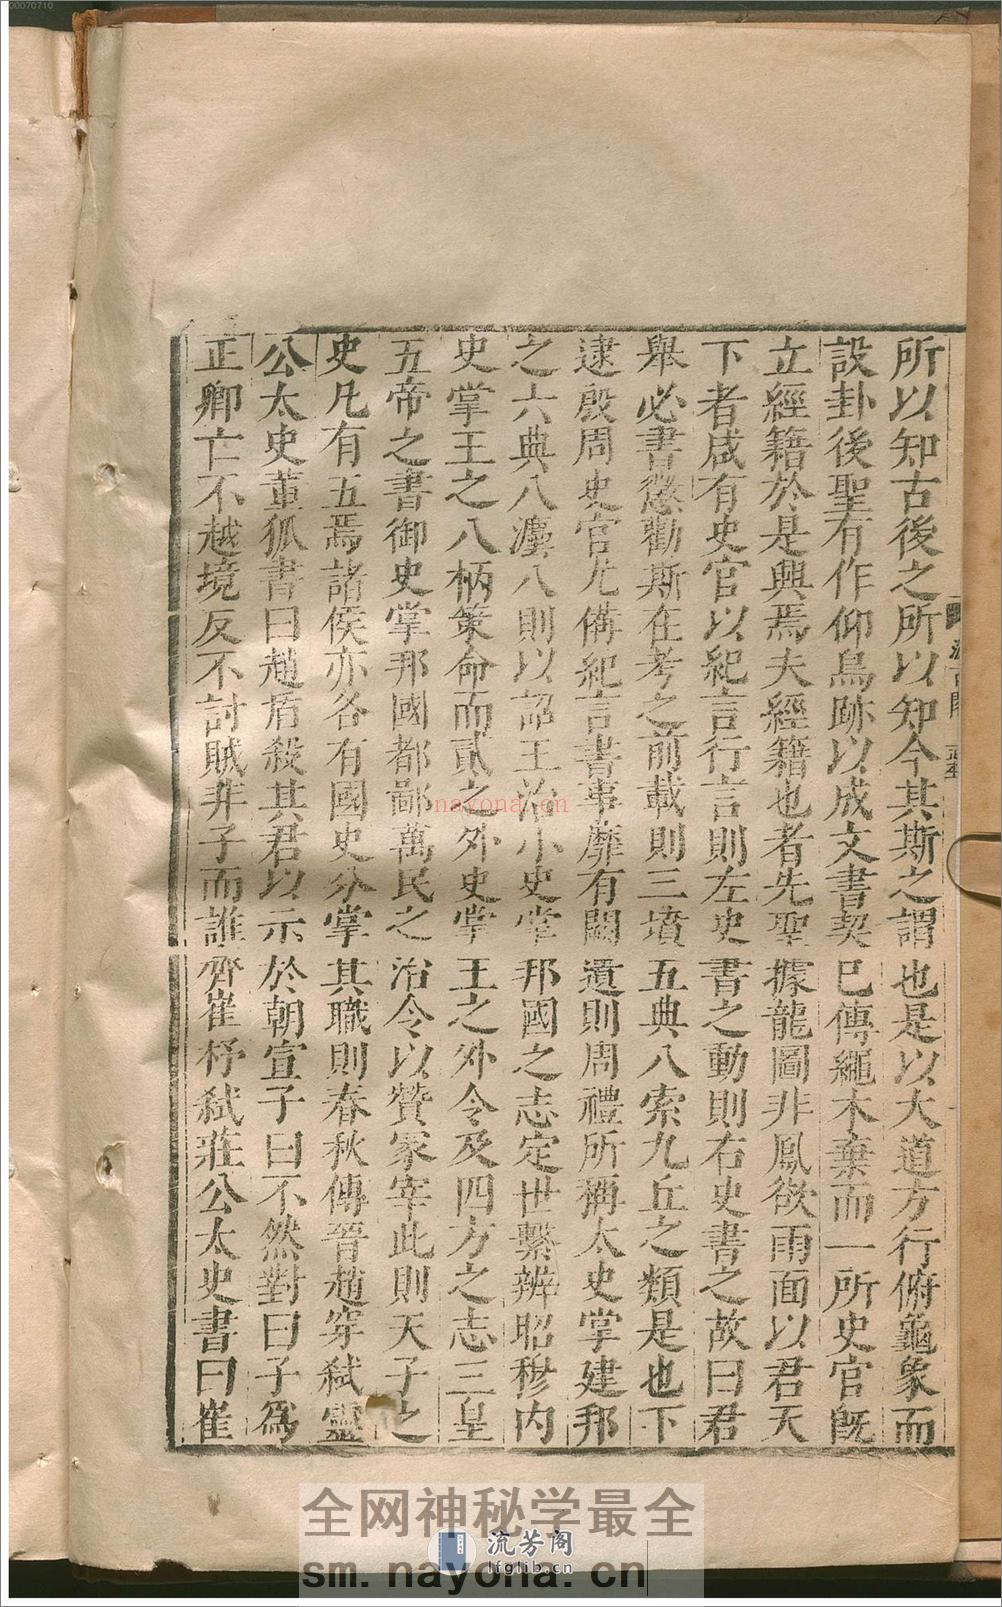 所以知古後之所以知今其斯之謂也是以大道方行俯龜象而
設卦後聖有作仰鳥跡以成文書契已傳繩木棄而不用史官旣
立經籍於是興焉夫經籍也者先聖據龍圖
下者咸有史官以紀言行言則左史書之動則右史書之故曰君
舉必書懲勸斯在考之前載則三墳五典八索九丘之類是也下
逮殷周史官尤備紀言書事靡有闕遺則周禮所稱太史掌建邦
之六典八灋八則以詔王治小史掌邦國之志定世繫辨昭穆内
史掌王之八柄策命而貳之外史掌王之外令及四方之志三皇
五帝之書御史掌邦國都鄙萬民之治令以贊冢宰此則天子之
史凡有五焉諸侯亦各有國史分掌其職則春秋傳晉趙穿弑靈
公太史董狐書曰趙盾殺其君以示於朝宣子曰不然對曰子爲
正卿亡不越境反不討賊非子而誰齊崔杼弑莊公太史書曰崔
00070710
nayona.cn
全网神秘学最全
流芳阁
lfglib.cn
sm.nayona.cn